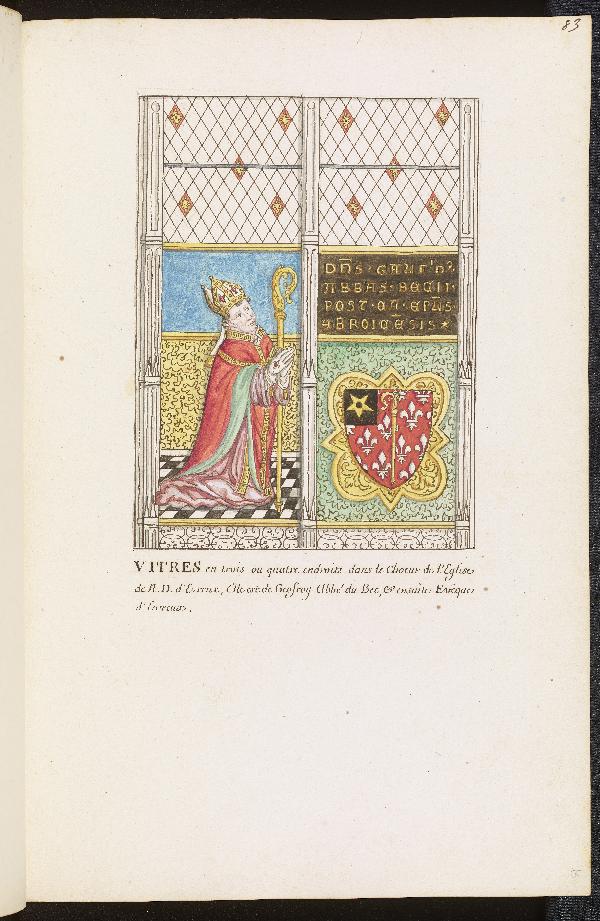 83
DN̄S · GAUF'D9
ABBAS · BECII ·
POST · EA · EPŪS ·
EBROICĒSIS ★
VITRES en trois ou quatre endroits dans le Choeur de l'Eglise
de N. D. d'Evreux, Elle est de Geofroy Abbé du Bec, & ensuite Evéque
d'Evreux.